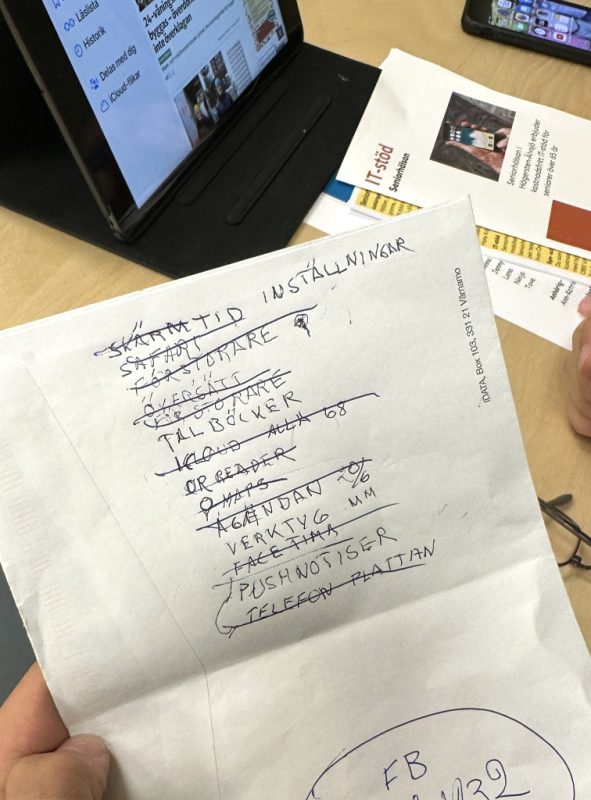 Läslista
Historik
Delas med dig
iCloud-flikar
24-våning
byggas – överdom
inte överklagan
IT-stöd
Seniorhälsan
Seniorhälsan i
Hägersten-Älvsjö erbjuder
kostnadsfritt IT-stöd för
seniorer över 65 år
IDATA, Box 103, 331 21 Värnamo
SKÄRMTID INSTÄLLNINGAR
SAFARI
FÖRSTORARE
ÖVERSÄTT
FÖRSTORARE
TALBÖCKER
ICLOUD ALLA 68
QR READER
MAPS
AGENDAN 20/6
VERKTYG MM
FACE TIMA
PUSHNOTISER
TELEFON PLATTAN
FB